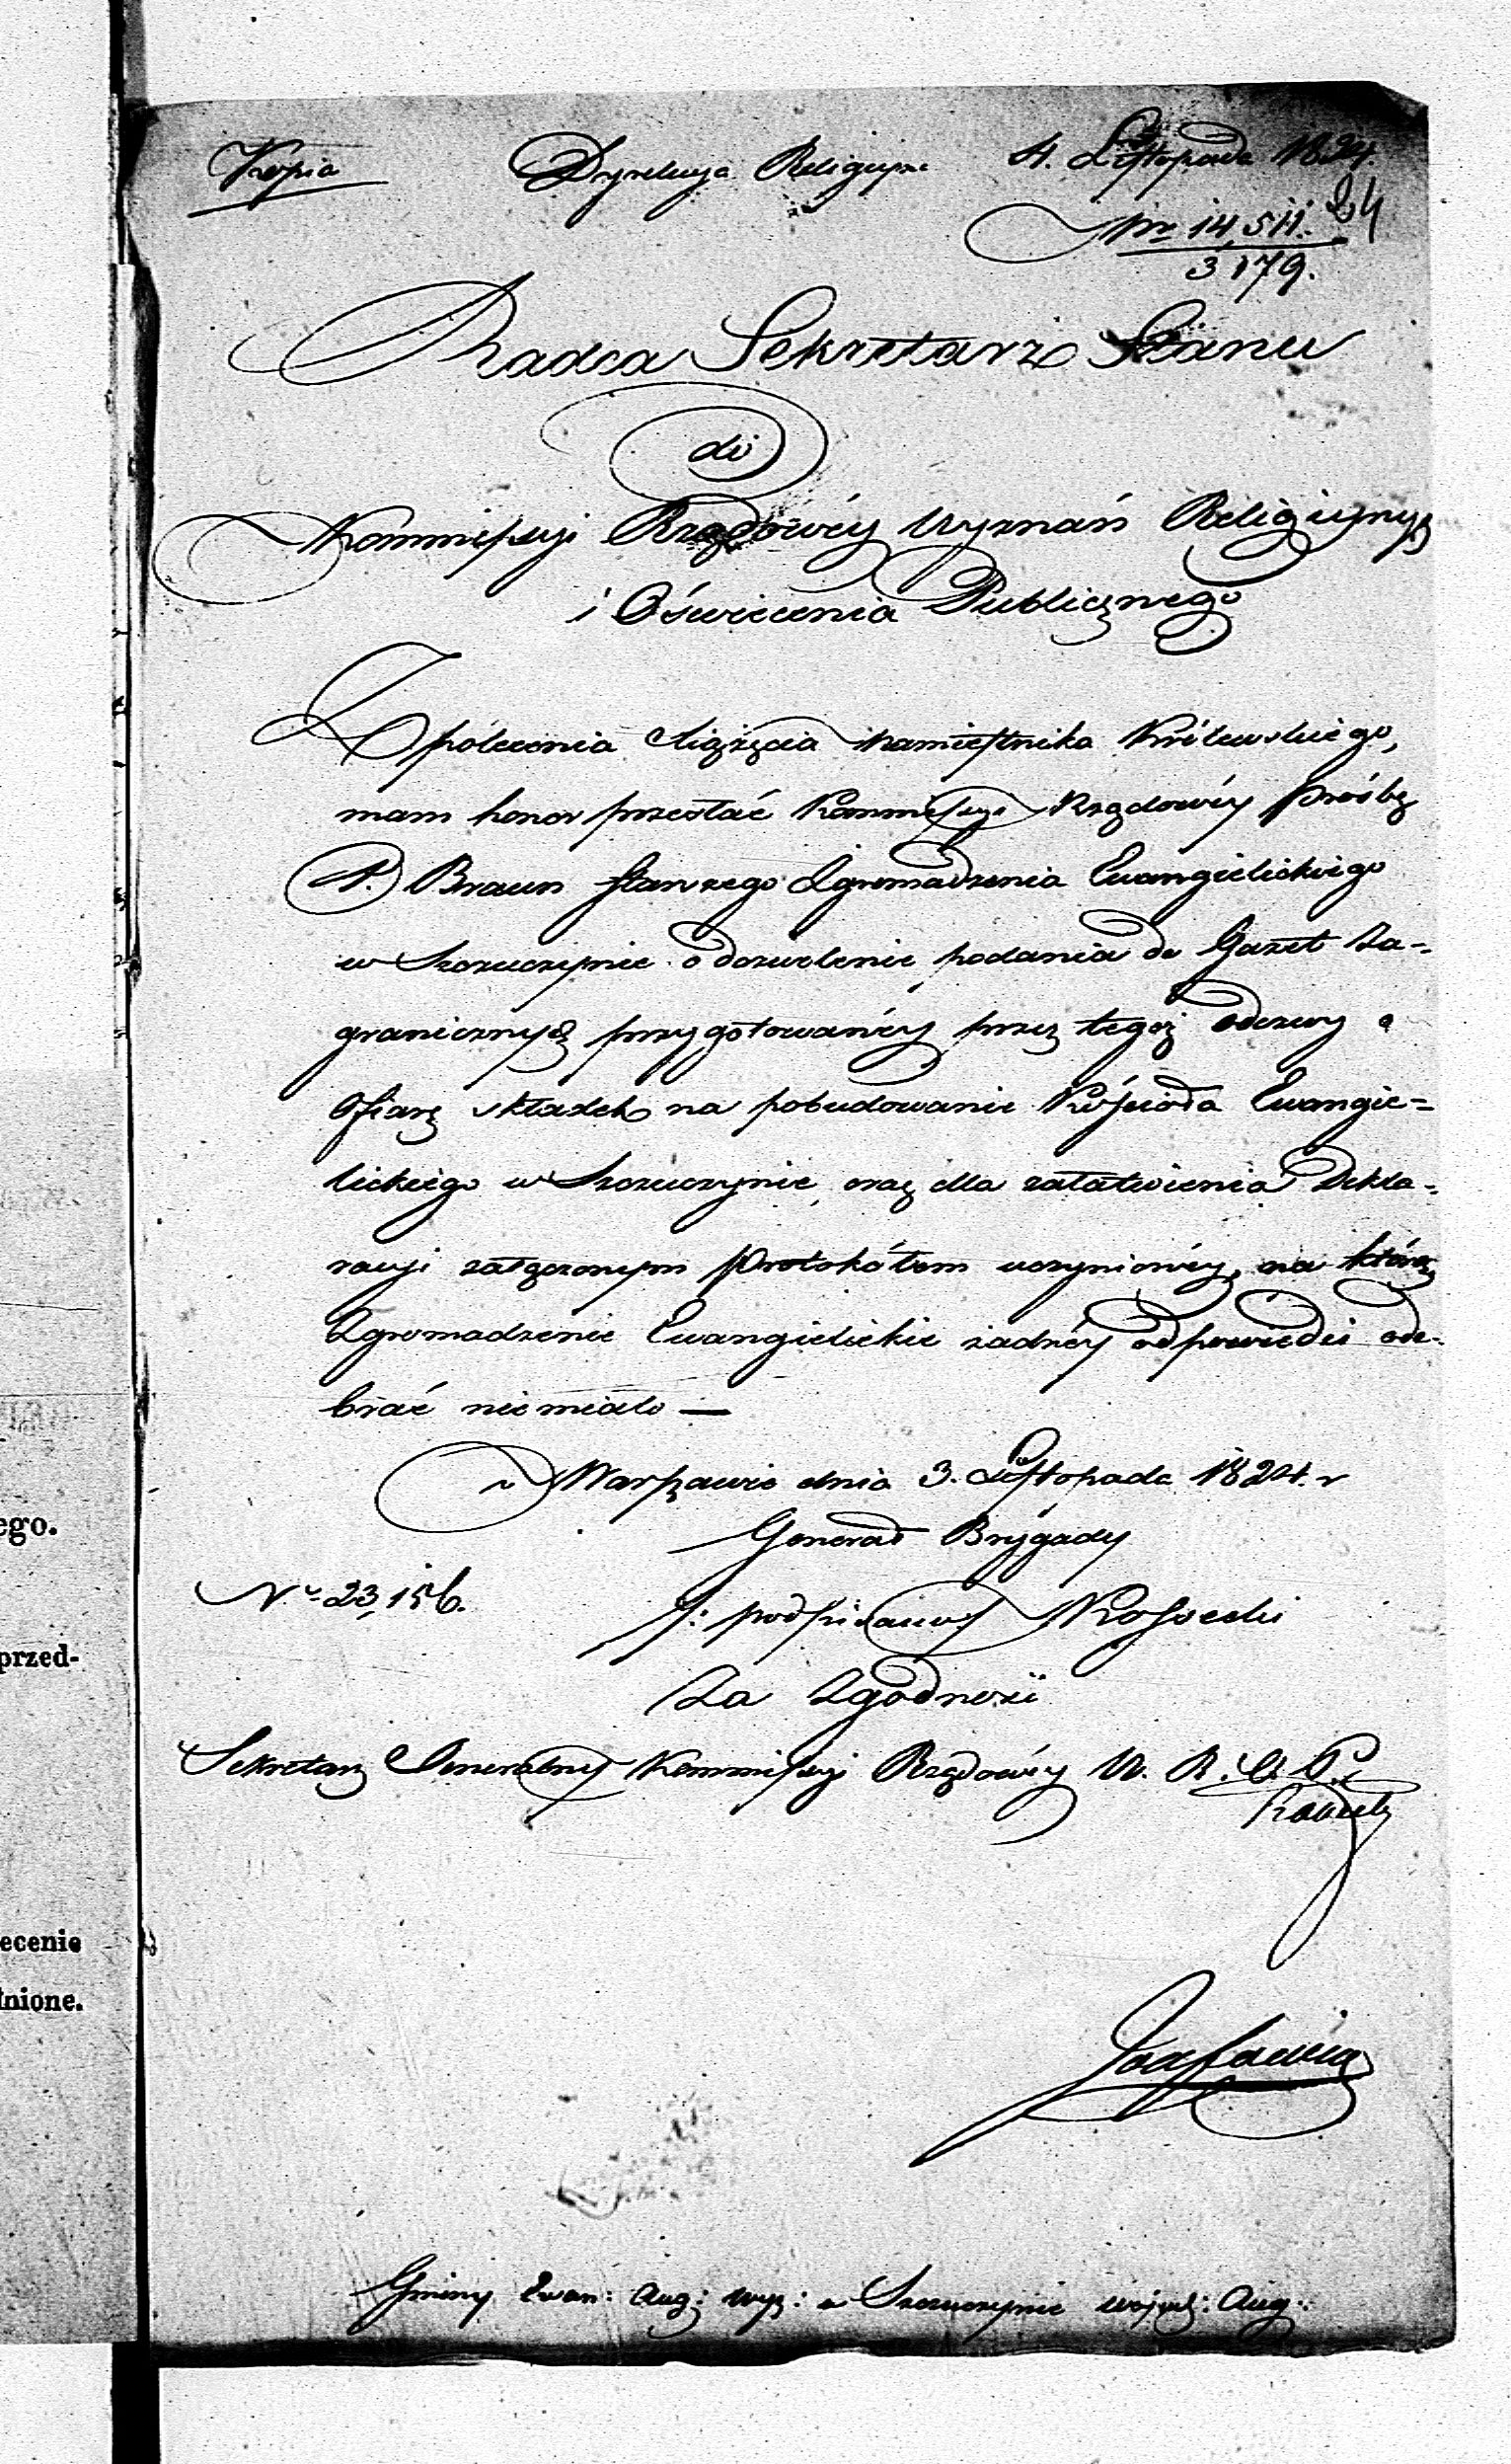 Kopia Dyrekcya Religijna 4. Listopada 1824.
24
Nr 14,511.
3,179.
Radca Sekretarz Stanu
do
Kommissyi Rządowéy Wyznań Religiynych
i Oświecenia Publicznego
Z polecenia Xiążęcia Namiestnika Królewskiego,
mam honor przesłać Kommissyi Rządowéy Prośbę
P. Braun starszego Zgromadzenia Ewangielickiego
w Szczuczynie o dozwolenie podania do Gazet Za=
granicznych przygotowanéy przez tegoż odezwy o
Ofiarę składek na pobudowanie Kościoła Ewangie=
lickiego w Szczuczynie, oraz dla załatwienia Dekla=
racyi załączonym Protokółem uczynionéy, na którą
Zgromadzenie Ewangielickie żadnéy odpowiedzi ode=
brać niemiało —
w Warszawie dnia 3. Listopada 1824. r
Generał Brygady
N. 23,156. podpisany Kossecki
Za Zgodność
Sekretarz Generalny Kommissyi Rządowéy W. R. O. P.
Gminy Ewan: Aug: wyz: w Szczuczynie wojew: Aug:
ego.
przed-
ecenie
łnione.